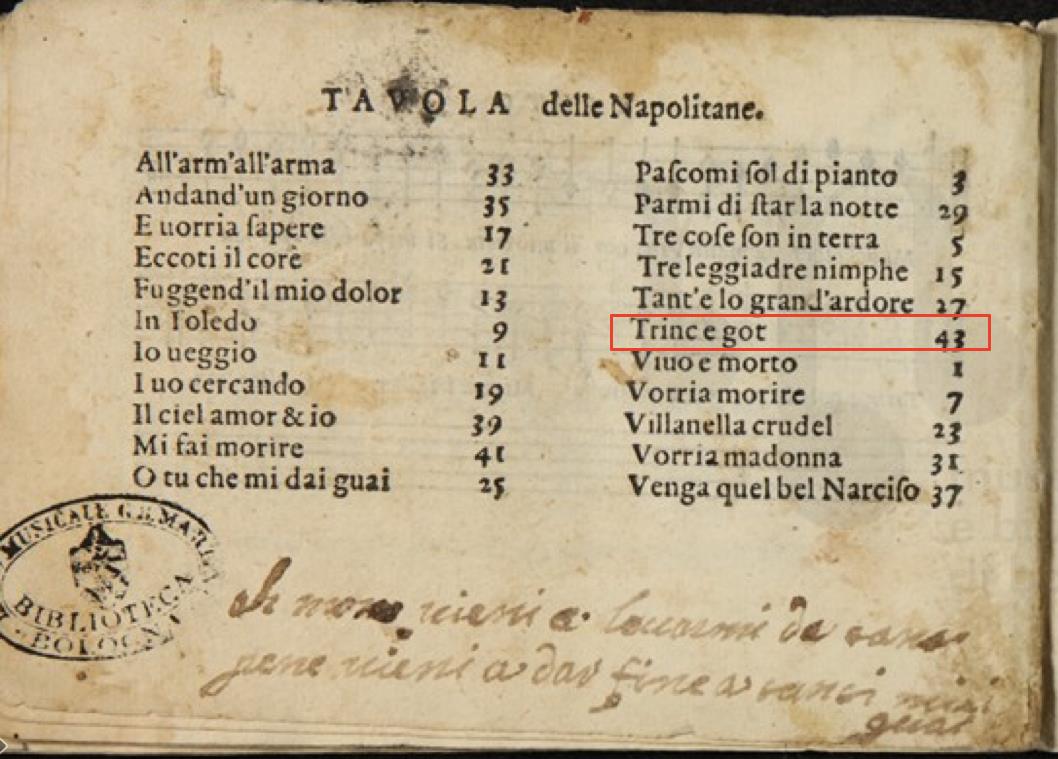 TAVOLA delle Napolitane.
All'arm'all'arma 33
Andand'un giorno 35
E uorria ſapere 17
Eccoti il core 21
Fuggend'il mio dolor 13
In Toledo 9
Io ueggio 11
I uo cercando 19
Il ciel amor & io 39
Mi fai morire 41
O tu che mi dai guai 25
Paſcomi ſol di pianto 3
Parmi di ſtar la notte 29
Tre coſe ſon in terra 5
Tre leggiadre nimphe 15
Tant'e lo grand'ardore 27
Trinc e got 43
Viuo e morto 1
Vorria morire 7
Villanella crudel 23
Vorria madonna 31
Venga quel bel Narciſo 37
MUSICALE G.B. MARTI
BIBLIOTECA
BOLOGN
uieni a leuarmi da
pene uieni a dar fine a tanti miei
guai